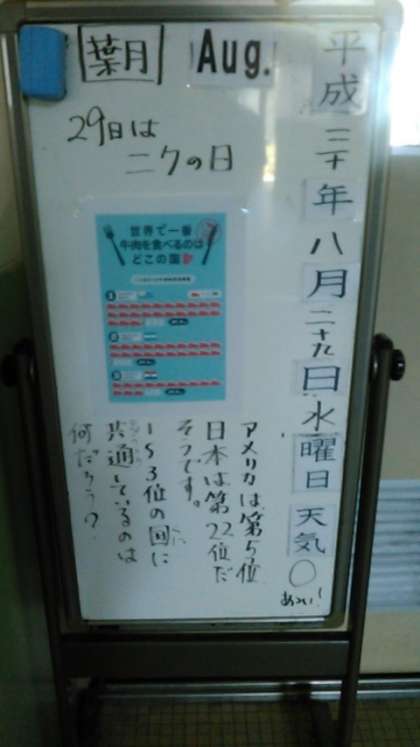 葉月
Aug.
平成三十年八月二十九日水曜日天気○
あつい!
29日は
ニクの日
世界で一番
牛肉を食べるのは
どこの国
アメリカは第5位
日本は第22位だ
そうです。
1〜3位の国に
共通しているのは
何だろう?